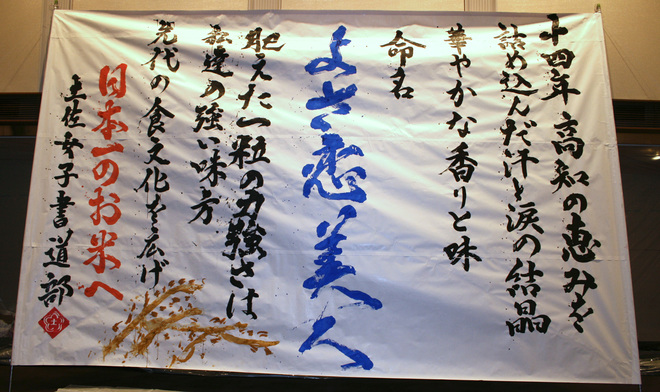 十四年高知の恵みを
詰め込んだ汗と涙の結晶
華やかな香りと味
命名
よさ恋美人
肥えた一粒の力強さは
私達の強い味方
先代の食文化を広げ
日本一のお米へ
土佐女子書道部